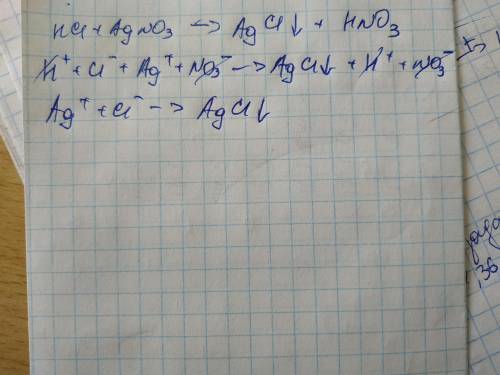 HCl + AgNO₃ → AgCl↓ + HNO₃
H⁺ + Cl⁻ + Ag⁺ + NO₃⁻ → AgCl↓ + H⁺ + NO₃⁻
Ag⁺ + Cl⁻ → AgCl↓